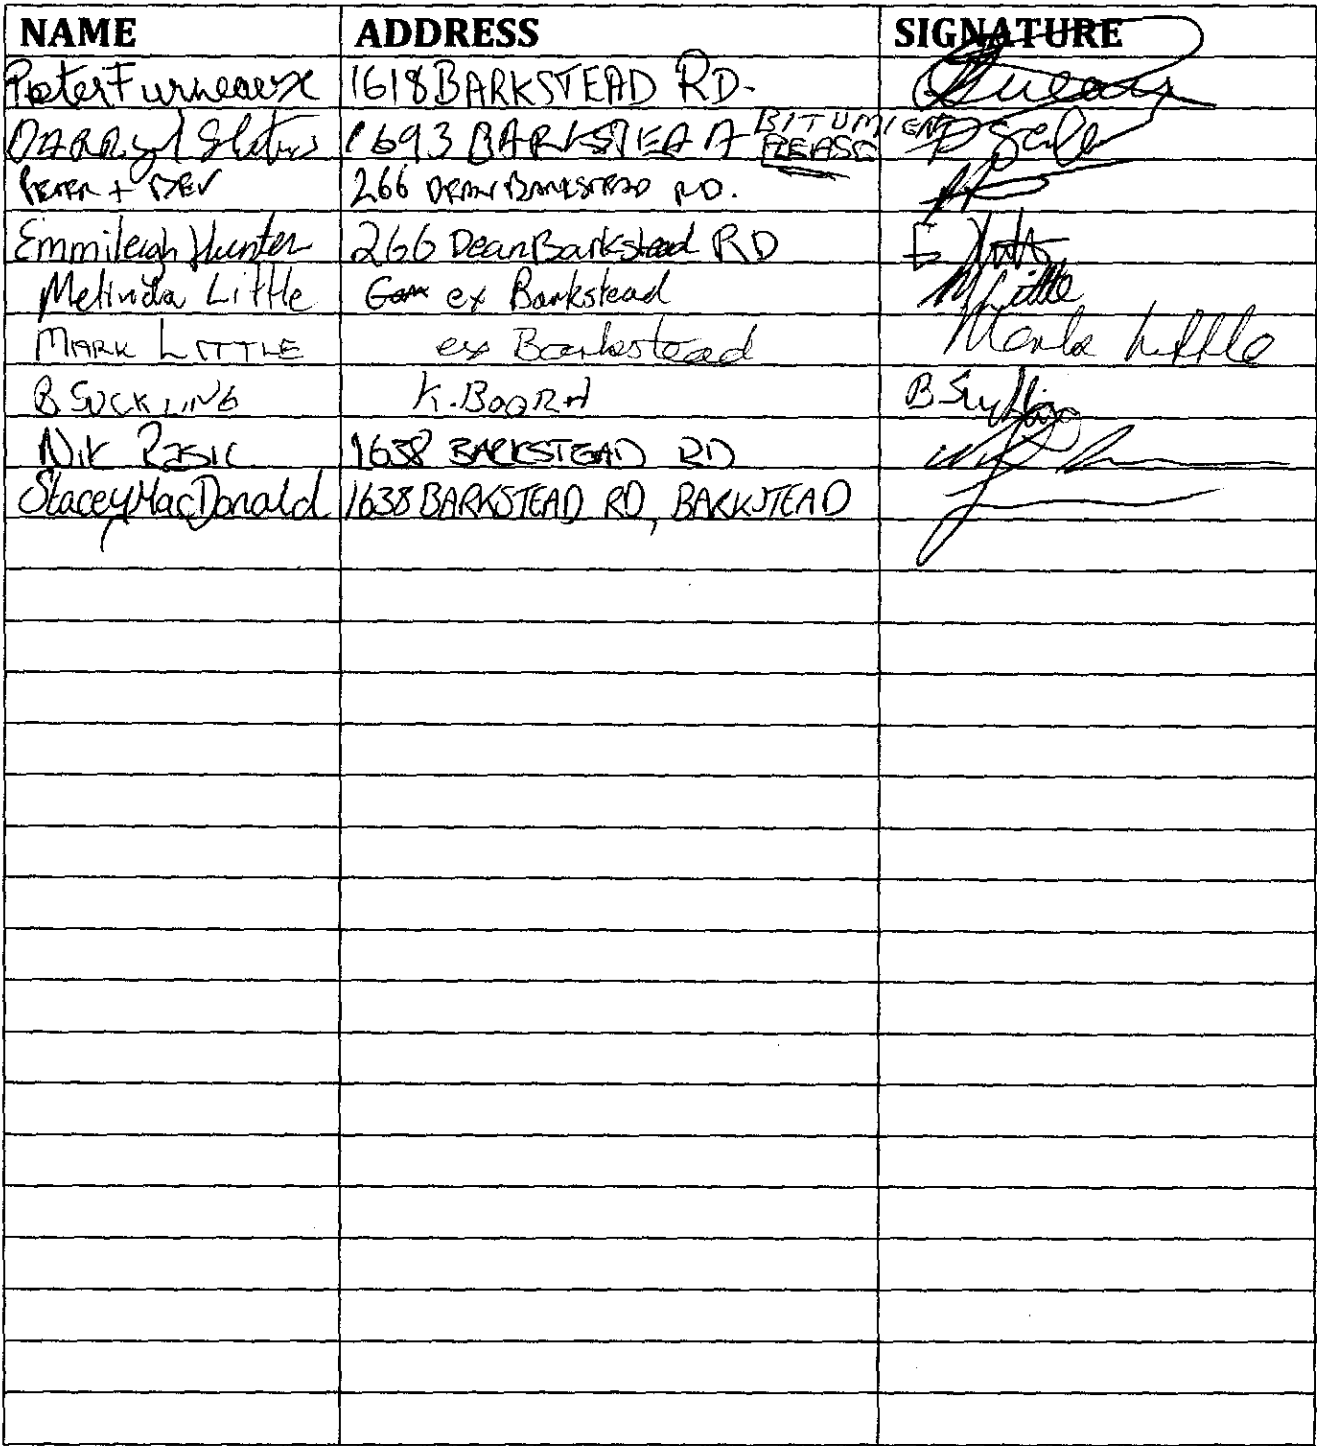 NAME ADDRESS SIGNATURE
Peter Furneaux 1618 BARKSTEAD RD.
DARRyl 1693 BARKSTEAD BITUMIEN PLEASE
PETER + BEV 266 DEAN BARKSTEAD RD.
Emmileigh Hunter 266 Dean Barkstead RD
Melinda Little ex Barkstead M Little
MARK LITTLE ex Barkstead Mark Little
B SUCKLING K. BOORA B. Suckling
NIK RASIC 1638 BARKSTEAD RD
Stacey MacDonald 1638 BARKSTEAD RD, BARKSTEAD